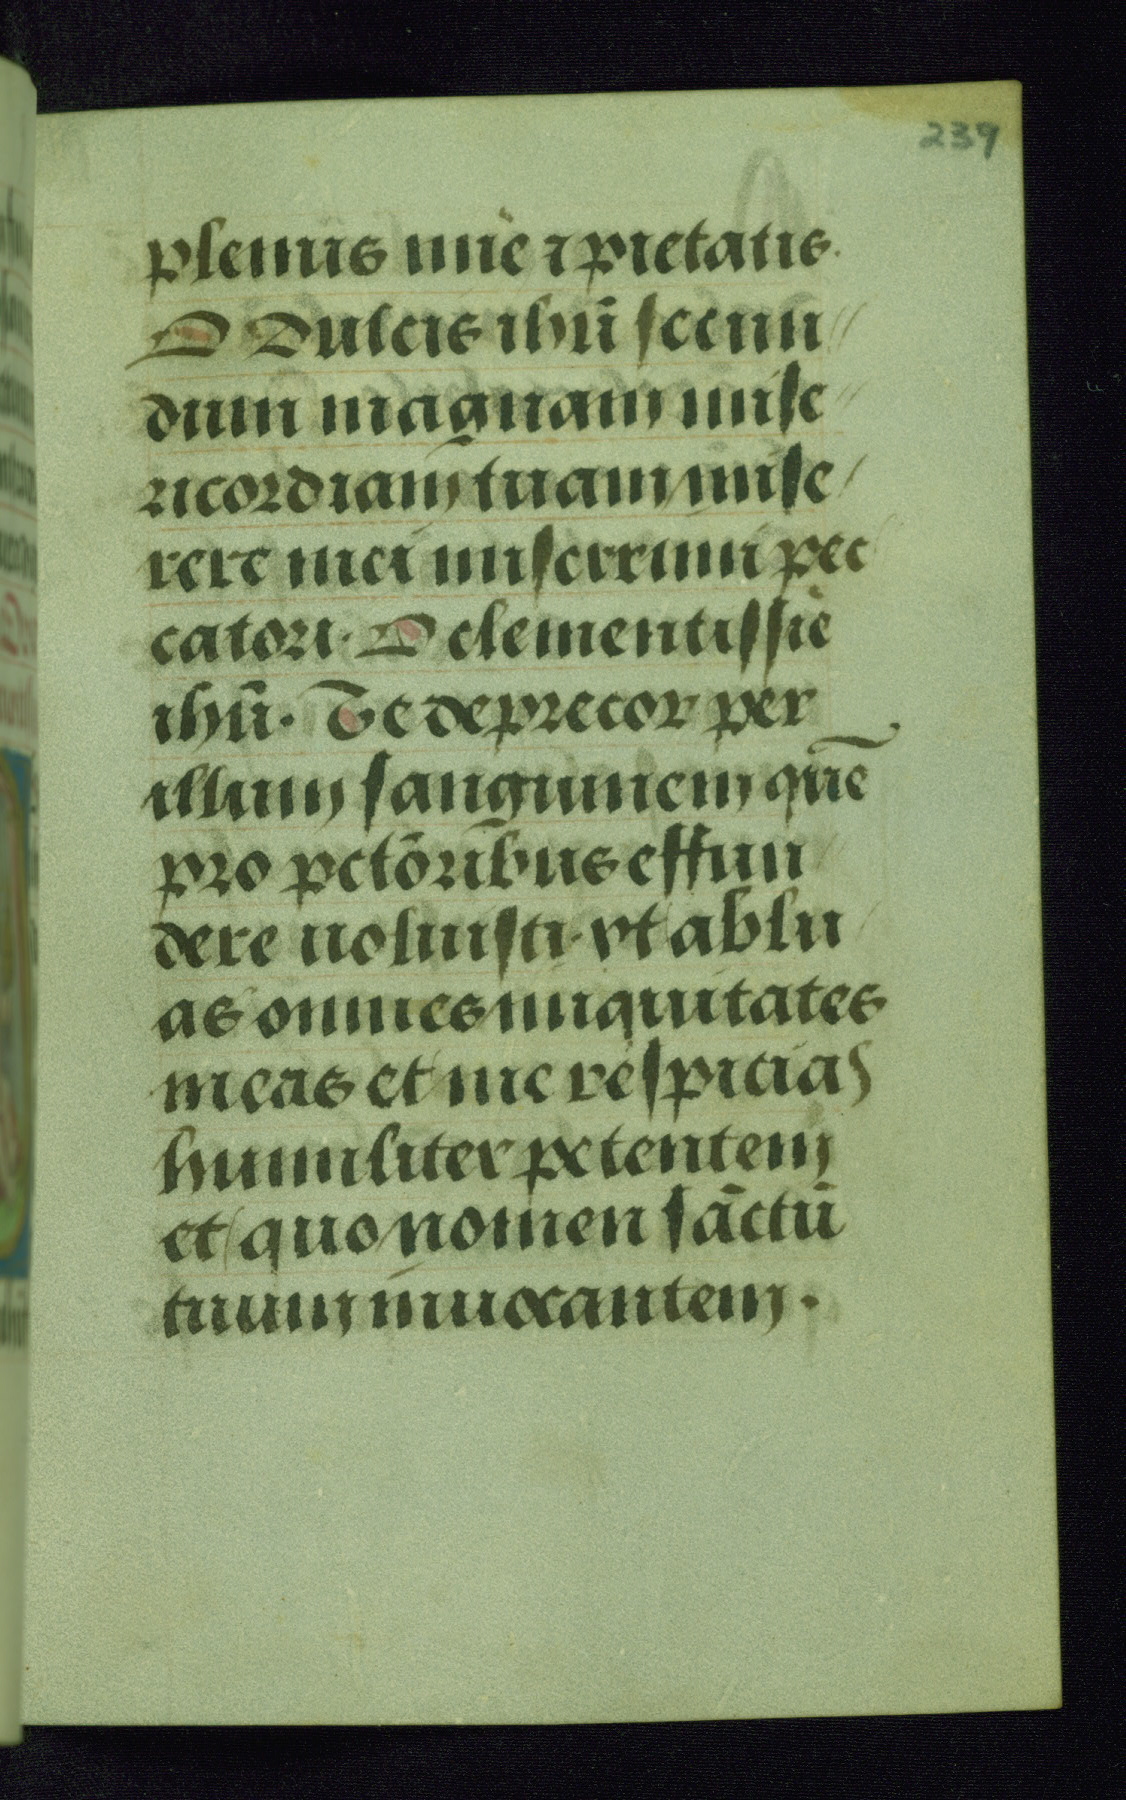 239
plenus mie ⁊ pietatis.
O Dulcis ihū secun//
dum magnam mise//
ricordiam tuam mise/
rere mei miserrimi pec
catori. O clementissie
ihū. Te deprecor per
illum sanguinem quē
pro pctōribus effun
dere uoluisti. vt ablu
as omnes iniquitates
meas et me respicias
humiliter petentem
et quo nomen sāctū
tuum inuocantem.